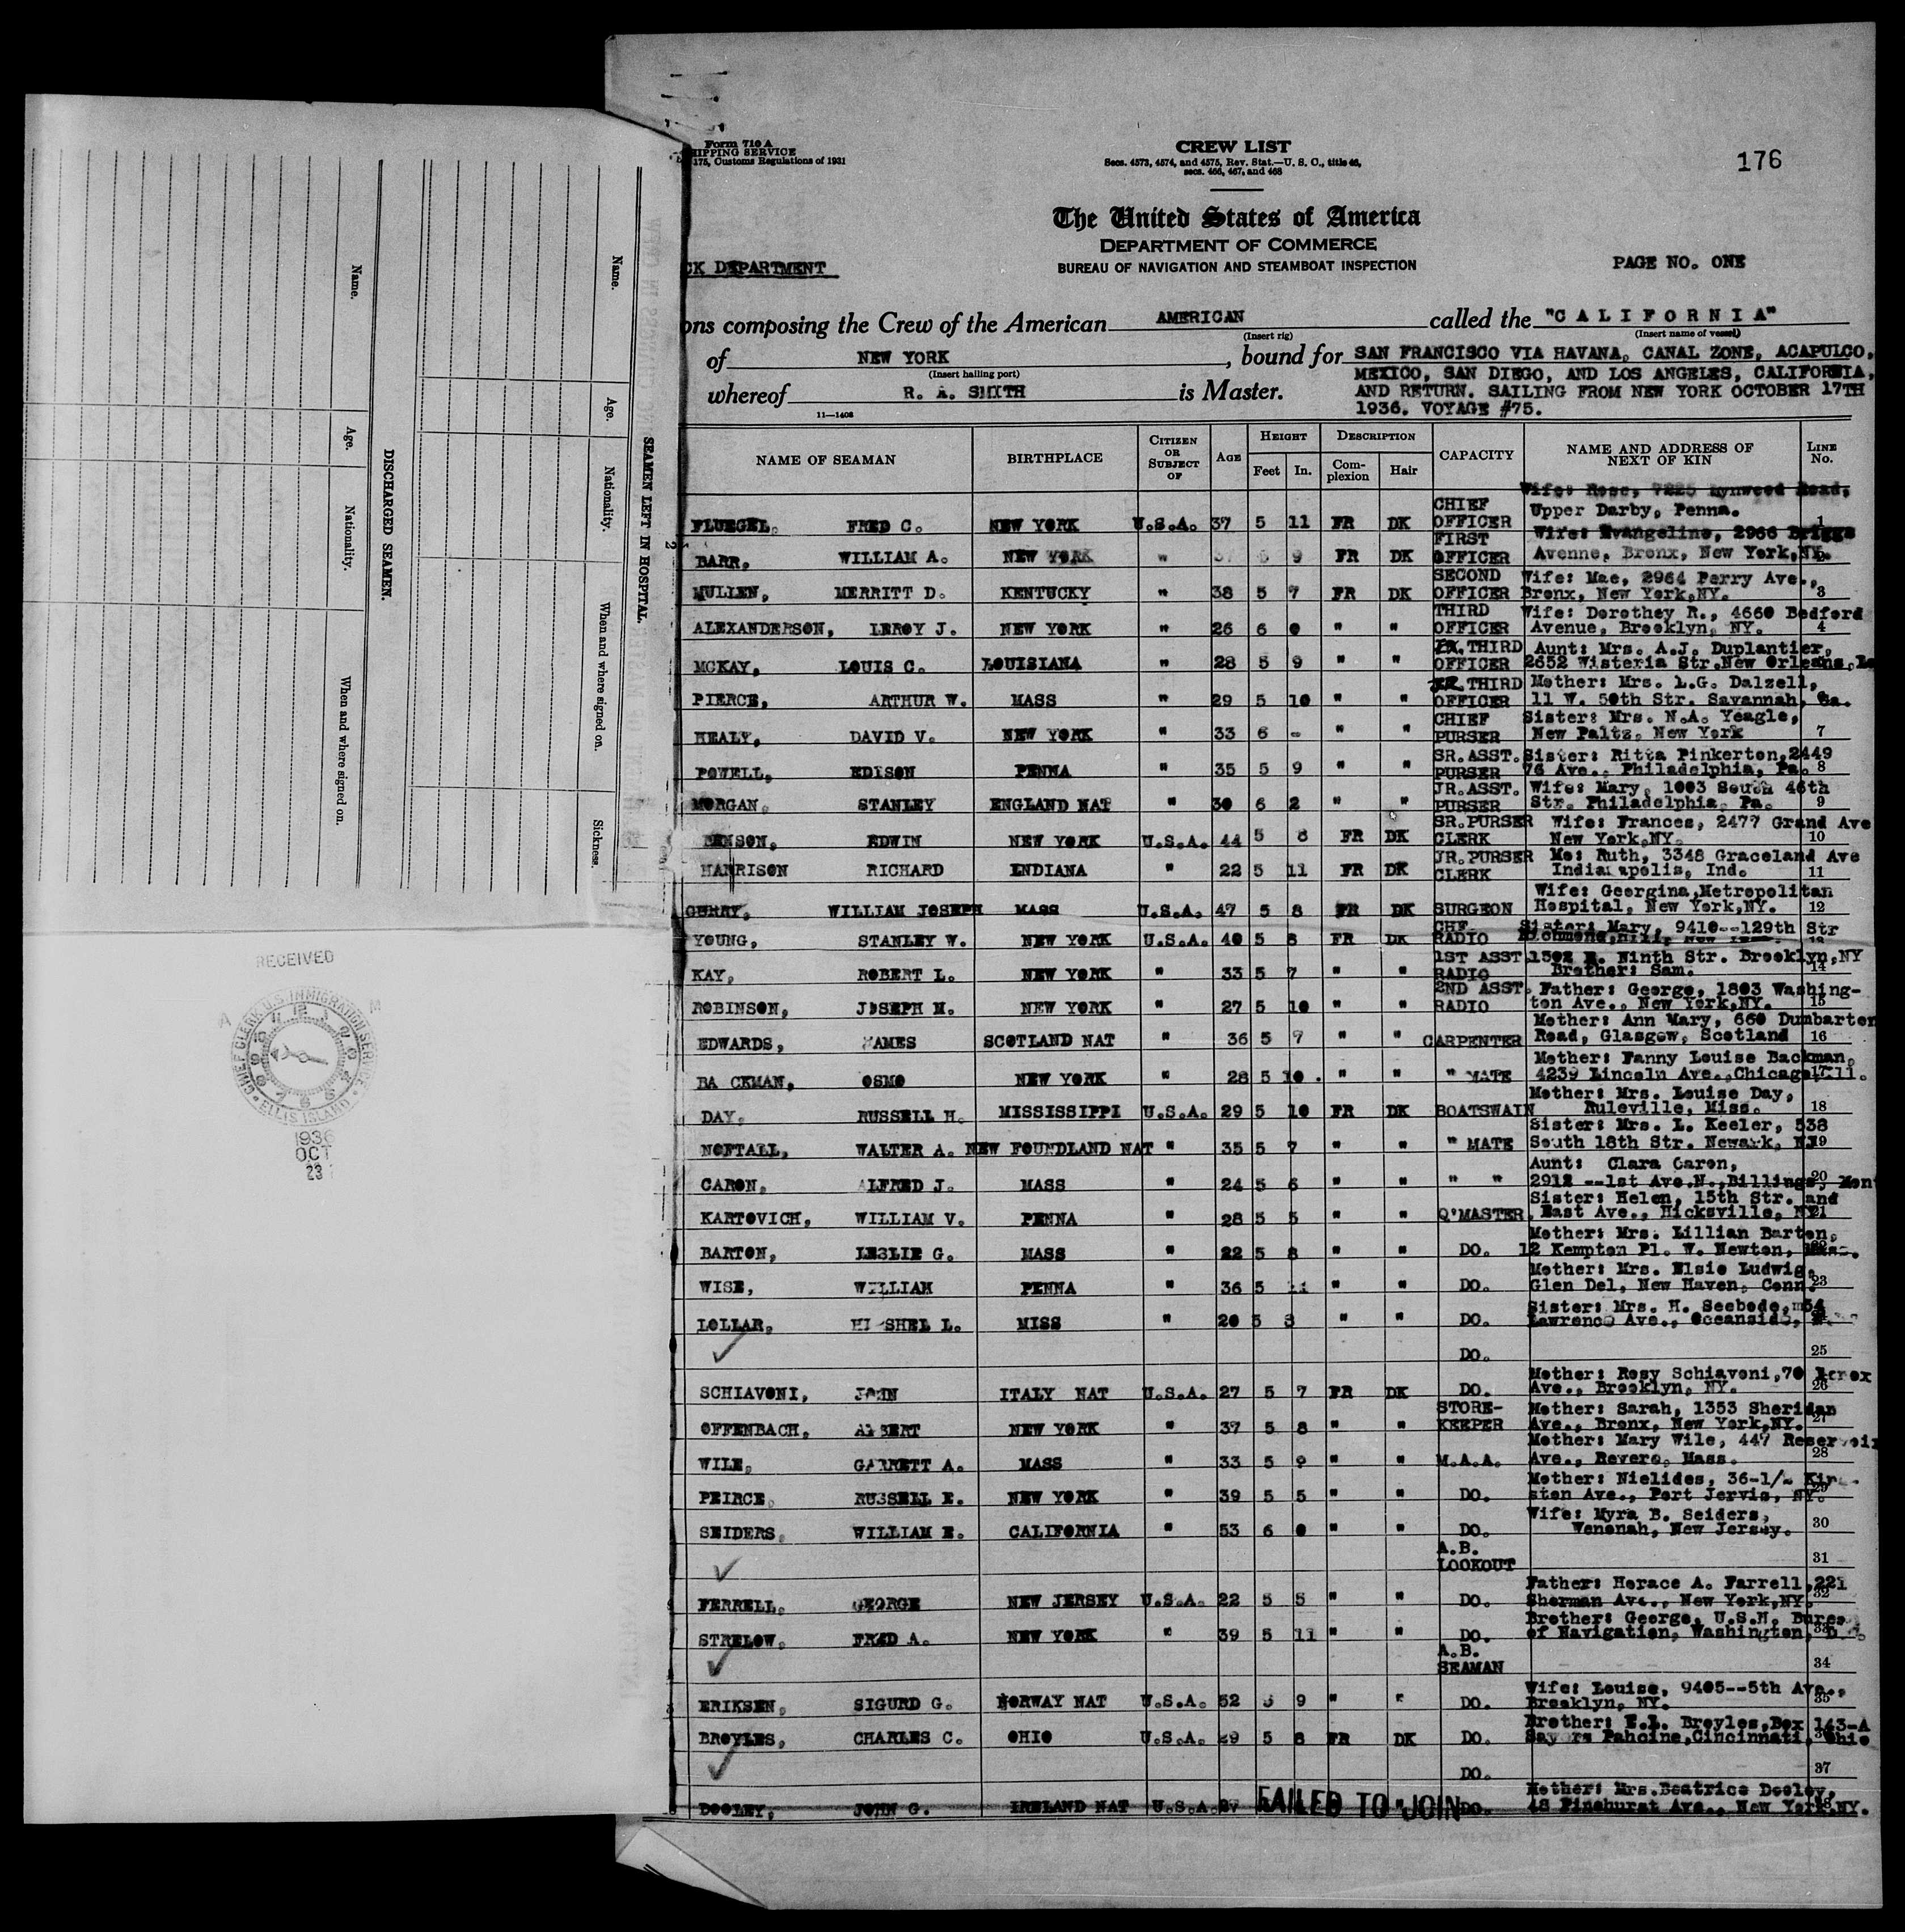 Form 710 A
176
CREW LIST
175, Customs Regulations of 1931
Secs. 4573, 4574, and 4575, Rev. Stat.—U. S. C., title 46,
secs. 466, 467, and 468
The United States of America
DEPARTMENT OF COMMERCE
BUREAU OF NAVIGATION AND STEAMBOAT INSPECTION
CK DEPARTMENT
PAGE NO. ONE
ons composing the Crew of the American AMERICAN called the "CALIFORNIA"
(Insert rig) (Insert name of vessel)
of NEW YORK , bound for SAN FRANCISCO VIA HAVANA, CANAL ZONE, ACAPULCO,
(Insert hailing port) MEXICO, SAN DIEGO, AND LOS ANGELES, CALIFORNIA,
whereof R. A. SMITH is Master. AND RETURN. SAILING FROM NEW YORK OCTOBER 17TH
11—1408 1936. VOYAGE #75.
NAME OF SEAMAN BIRTHPLACE CITIZEN OR SUBJECT OF AGE HEIGHT Feet In. DESCRIPTION Complexion Hair CAPACITY NAME AND ADDRESS OF NEXT OF KIN LINE No.
Wife: Rose, Lynwood Road,
FLUEGEL, FRED C. NEW YORK U.S.A. 37 5 11 FR DK CHIEF OFFICER Upper Darby, Penna. 1
Wife: Evangeline, 2966 Briggs
BARR, WILLIAM A. NEW YORK " 9 FR DK FIRST OFFICER Avenue, Bronx, New York,NY. 2
MULLEN, MERRITT D. KENTUCKY " 38 5 7 FR DK SECOND OFFICER Wife: Mae, 2964 Perry Ave., Bronx, New York,NY. 3
ALEXANDERSON, LEROY J. NEW YORK " 26 6 0 " " THIRD OFFICER Wife: Dorothey R., 4660 Bedford Avenue, Brooklyn, NY. 4
MCKAY, LOUIS C. LOUISIANA " 28 5 9 " " THIRD OFFICER Aunt: Mrs. A.J. Duplantier, 2652 Wisteria Str.New Orleans,La
PIERCE, ARTHUR W. MASS " 29 5 10 " " THIRD OFFICER Mother: Mrs. L.G. Dalzell, 11 W. 50th Str. Savannah, Ga.
HEALY, DAVID V. NEW YORK " 33 6 - " " CHIEF PURSER Sister: Mrs. N.A. Yeagle, New Paltz, New York 7
POWELL, EDISON PENNA " 35 5 9 " " SR. ASST. PURSER Sister: Ritta Pinkerton,2449 76 Ave., Philadelphia, Pa. 8
MORGAN, STANLEY ENGLAND NAT " 30 6 2 " " JR. ASST. PURSER Wife: Mary, 1003 South 46th Str. Philadelphia, Pa. 9
EDWIN NEW YORK U.S.A. 44 5 8 FR DK SR. PURSER CLERK Wife: Frances, 2477 Grand Ave New York,NY. 10
HARRISON RICHARD INDIANA " 22 5 11 FR DK JR. PURSER CLERK Mo: Ruth, 3348 Graceland Ave Indianapolis, Ind. 11
WILLIAM JOSEPH MASS U.S.A. 47 5 8 FR DK SURGEON Wife: Georgina,Metropolitan Hospital, New York,NY. 12
YOUNG, STANLEY W. NEW YORK U.S.A. 40 5 8 FR DK CHF RADIO Sister: Mary, 9410--129th Str Richmond Hill, New York
KAY, ROBERT L. NEW YORK " 33 5 7 " " 1ST ASST RADIO 1502 E. Ninth Str. Brooklyn,NY Brother: Sam. 14
ROBINSON, JOSEPH M. NEW YORK " 27 5 10 " " 2ND ASST. RADIO Father: George, 1803 Washington Ave., New York,NY. 15
EDWARDS, JAMES SCOTLAND NAT " 36 5 7 " " CARPENTER Mother: Ann Mary, 660 Dumbarton Road, Glasgow, Scotland 16
BACKMAN, OSMO NEW YORK " 28 5 10 . " " " MATE Mother: Fanny Louise Backman, 4239 Lincoln Ave.,Chicago,Ill. 17
DAY, RUSSELL H. MISSISSIPPI U.S.A. 29 5 10 FR DK BOATSWAIN Mother: Mrs. Louise Day, Ruleville, Miss. 18
NOFTALL, WALTER A. NEW FOUNDLAND NAT " 35 5 7 " " " MATE Sister: Mrs. L. Keeler, 538 South 18th Str. Newark, NJ 19
CARON, ALFRED J. MASS " 24 5 6 " " " " Aunt: Clara Caron, 2912 --1st Ave.N.,Billings, Mont 20
KARTOVICH, WILLIAM V. PENNA " 28 5 5 " " Q'MASTER Sister: Helen, 15th Str. and East Ave., Hicksville, NY 21
BARTON, LESLIE G. MASS " 22 5 8 " " DO. Mother: Mrs. Lillian Barton, 12 Kempton Pl. W. Newton, Mass.
WISE, WILLIAM PENNA " 36 5 11 " " DO. Mother: Mrs. Elsie Ludwig, Glen Del, New Haven, Conn. 23
LOLLAR, HERSHEL L. MISS " 20 5 8 " " DO. Sister: Mrs. H. Seebode, Lawrence Ave., Oceanside,
DO. 25
SCHIAVONI, JOHN ITALY NAT U.S.A. 27 5 7 FR DK DO. Mother: Rosy Schiavoni,70 Ave., Brooklyn, NY. 26
OFFENBACH, ALBERT NEW YORK " 37 5 8 " " STORE-KEEPER Mother: Sarah, 1353 Sheridan Ave., Bronx, New York,NY. 27
WILE, GARRETT A. MASS " 33 5 9 " " M.A.A. Mother: Mary Wile, 447 Reservoir Ave., Revere, Mass. 28
PEIRCE, RUSSELL E. NEW YORK " 39 5 5 " " DO. Mother: Nielides, Ave., Port Jervis, NY. 29
SEIDERS, WILLIAM E. CALIFORNIA " 53 6 0 " " DO. Wife: Myra B. Seiders, Wenonah, New Jersey. 30
A.B. LOOKOUT 31
FERRELL, GEORGE NEW JERSEY U.S.A. 22 5 5 " " DO. Father: Horace A. Farrell,221 Sherman Ave., New York,NY. 32
STRELOW, FRED A. NEW YORK " 39 5 11 " " DO. Brother: George, U.S.N. of Navigation, Washington,
A.B. SEAMAN 34
ERIKSEN, SIGURD G. NORWAY NAT U.S.A. 52 5 9 " " DO. Wife: Louise, 9405--5th Ave., Brooklyn, NY. 35
BROYLES, CHARLES C. OHIO U.S.A. 29 5 8 FR DK DO. Brother: E.L. Broyles,Box 143-A Cincinnati, Ohio
DO. 37
DOOLEY, JOHN G. IRELAND NAT U.S.A. 27 FAILED TO JOIN DO. Mother: Mrs.Beatrice Dooley, 48 Pinehurst Ave., New York,NY.
SEAMEN LEFT IN HOSPITAL.
Name. Age. Nationality. When and where signed on. Sickness.
DISCHARGED SEAMEN.
Name. Age. Nationality. When and where signed on.
RECEIVED
CHIEF CLERK U.S. IMMIGRATION SERVICE
ELLIS ISLAND
1936
OCT
23